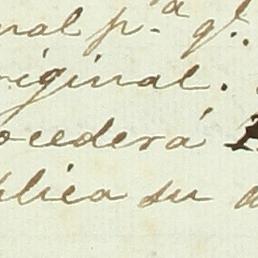 nal p.ª q.ᵉ
riginal.
ocederá
plica su a